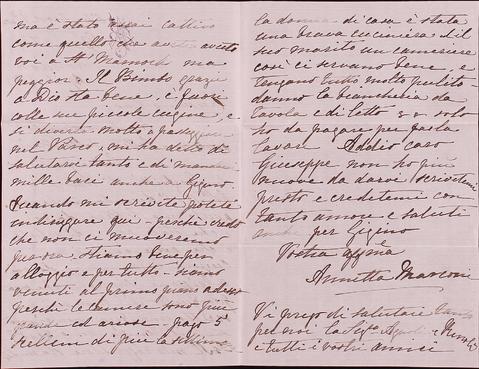 ma è stato assai cattivo
come quello che avete avuto
voi a St Warnock ma
peggio. Il Bimbo grazie
a Dio sta bene, è fuori
colle sue piccole cugine, e
si diverte molto a
nel Parco, mi ha detto di
salutarvi tanto e di mandarvi
mille baci anche a Gigino
Quando mi scrivete potete
indirizzare qui - perchè credo
che non ci muoveremo
per ora. stiamo bene per
alloggio e per tutto - siamo
venuti al primo piano adesso
perchè le camere sono più
grandi ed ariose - pago 5
di più la settimana
la donna di casa è stata
una brava cuciniera e il
suo marito un cameriere
così ci servano bene, e
tengano tutto molto pulito -
danno la biancheria da
tavola e di letto solo
ho da pagare per farla
lavare Addio caro
Giuseppe non ho più
nuove da darvi scrivetemi
presto e credetemi con
tanto amore e saluti
per Gigino
Vostra affma
Annetta Marconi
Vi prego di salutare tanto
per noi la Sigra
e tutti i vostri amici